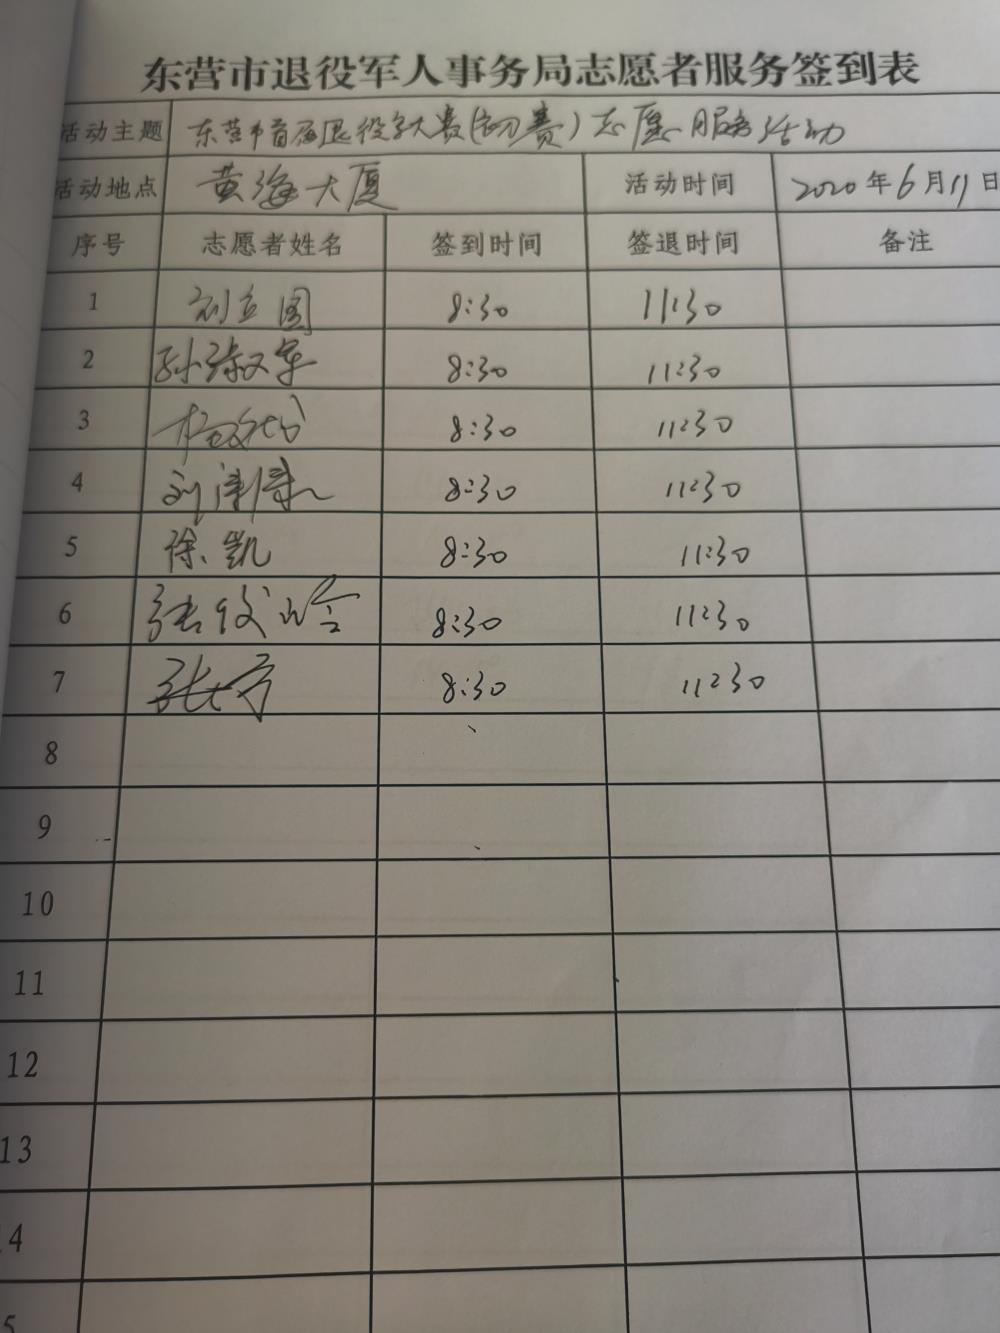 东营市退役军人事务局志愿者服务签到表
活动主题 东营市首届退役军人大赛(初赛)志愿服务活动
活动地点 黄海大厦 活动时间 2020年6月11日
序号 志愿者姓名 签到时间 签退时间 备注
1 刘立国 8:30 11:30
2 孙淑军 8:30 11:30
3 8:30 11:30
4 刘 8:30 11:30
5 徐凯 8:30 11:30
6 张俊岭 8:30 11:30
7 张 8:30 11:30
8
9
10
11
12
13
14
5